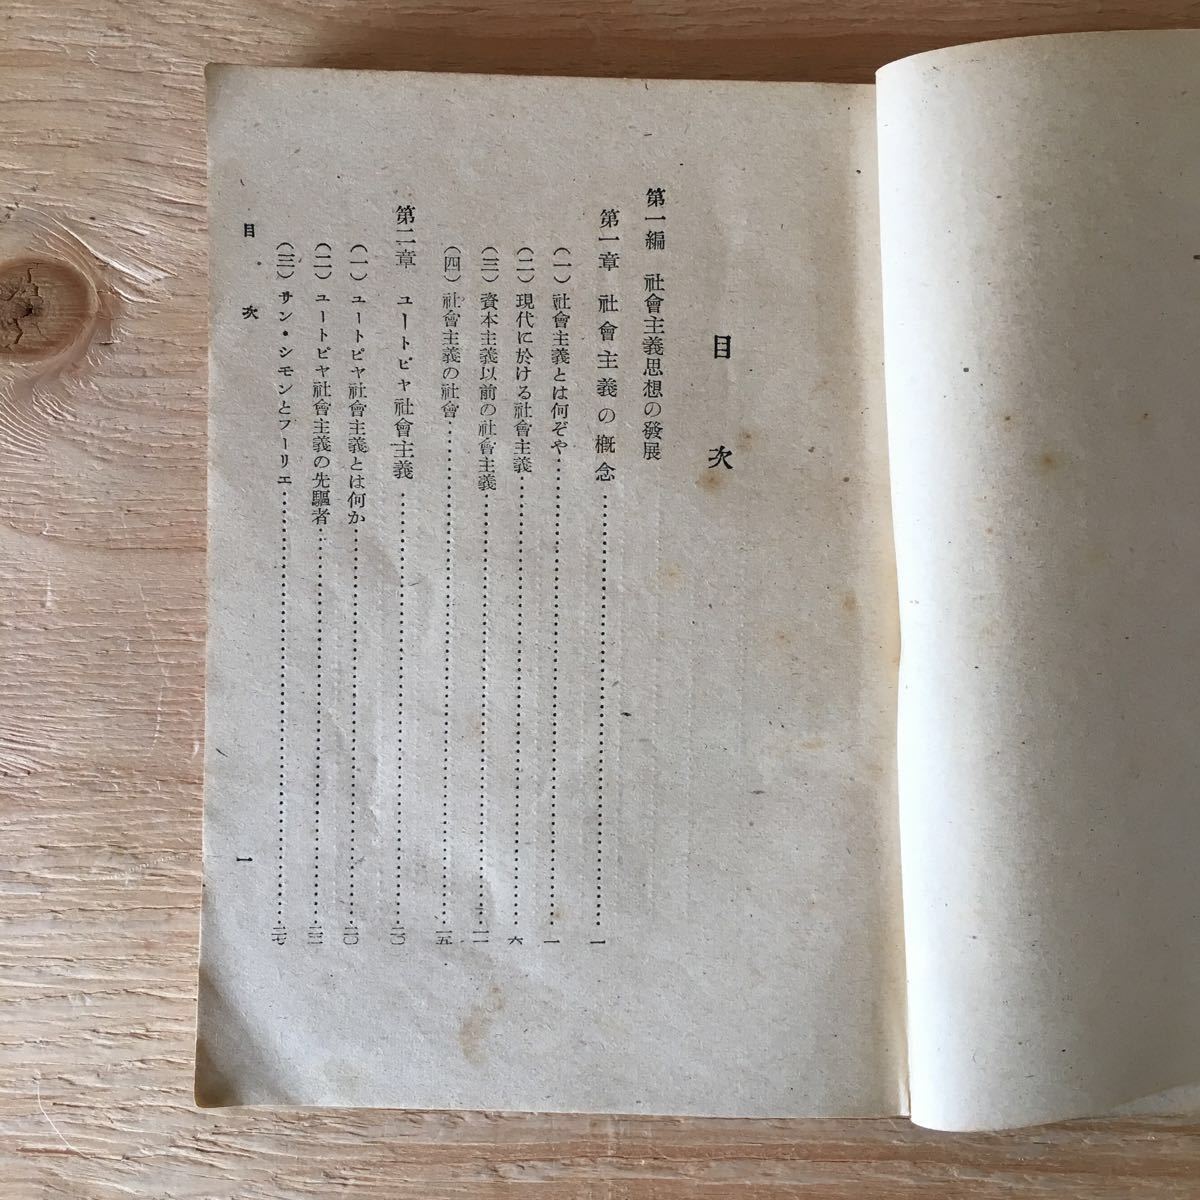 目次
第一編 社會主義思想の發展
第一章 社會主義の概念……一
(一) 社會主義とは何ぞや……一
(二) 現代に於ける社會主義……六
(三) 資本主義以前の社會主義……一二
(四) 社會主義の社會……一五
第二章 ユートピヤ社會主義……二〇
(一) ユートピヤ社會主義とは何か……二〇
(二) ユートピヤ社會主義の先驅者……二二
(三) サン・シモンとフーリエ……二七
目次 一